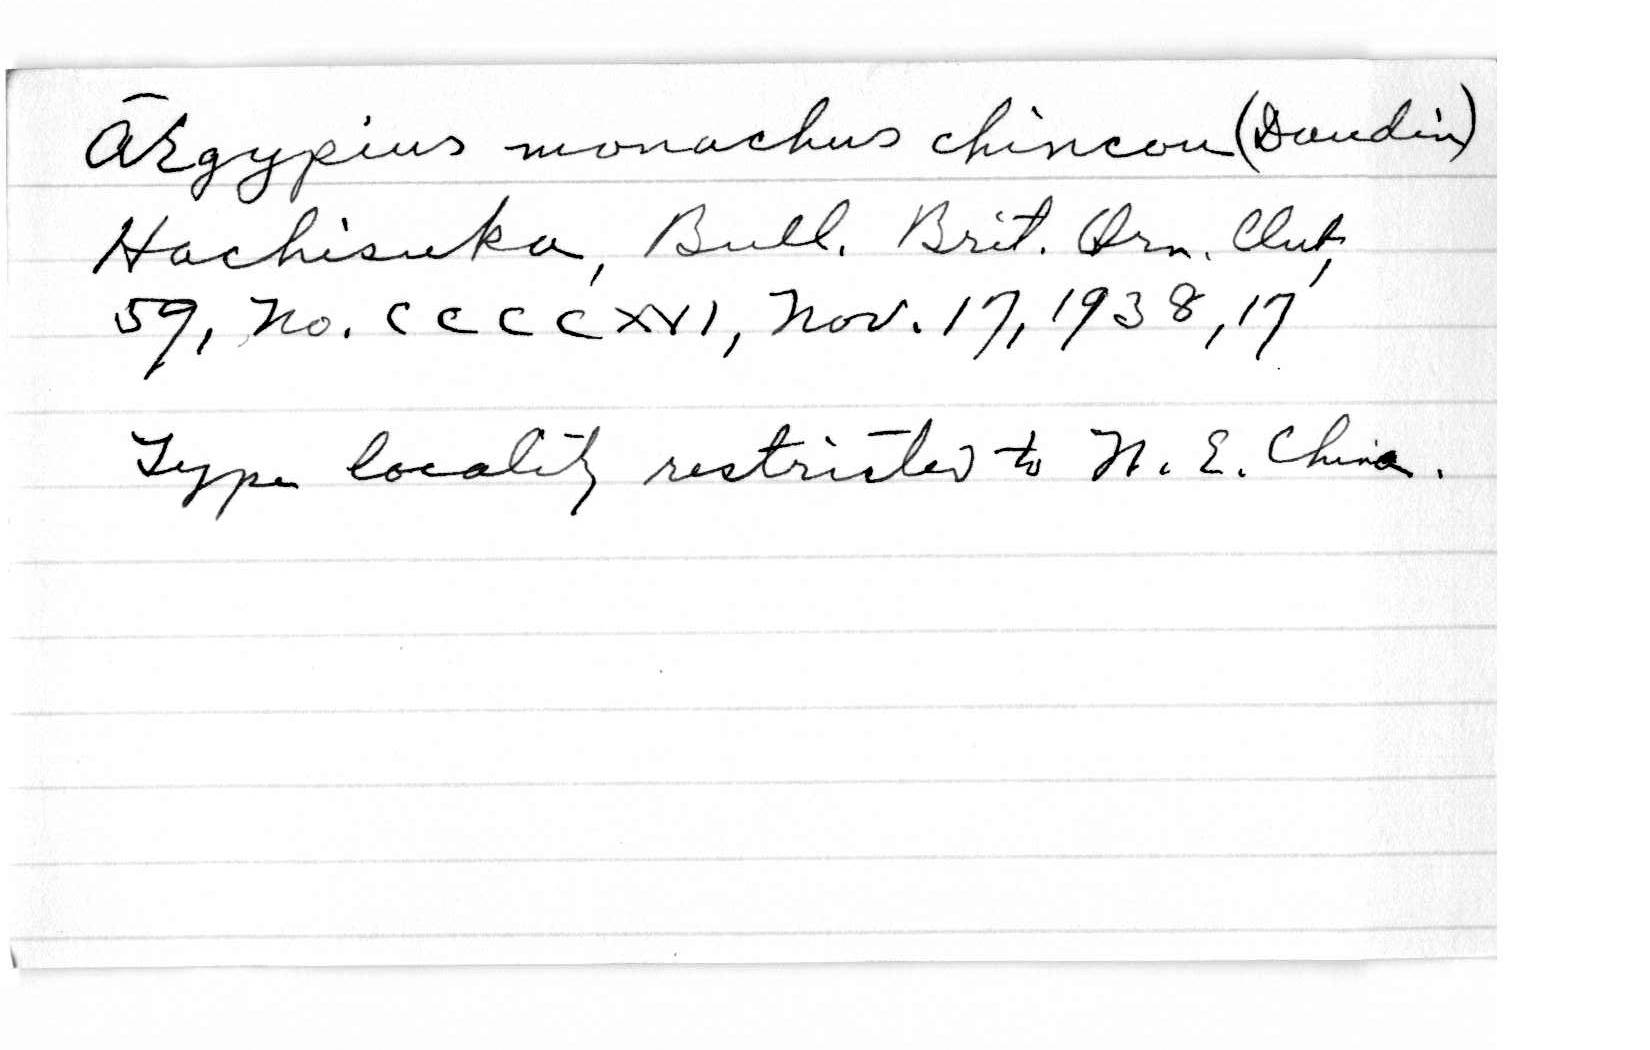 Aegypius monachus chincou (Daudin)
Hachisuka, Bull. Brit. Orn. Club,
59, No. CCCCXVI, Nov. 17, 1938, 17
Type locality restricted to N. E. China.